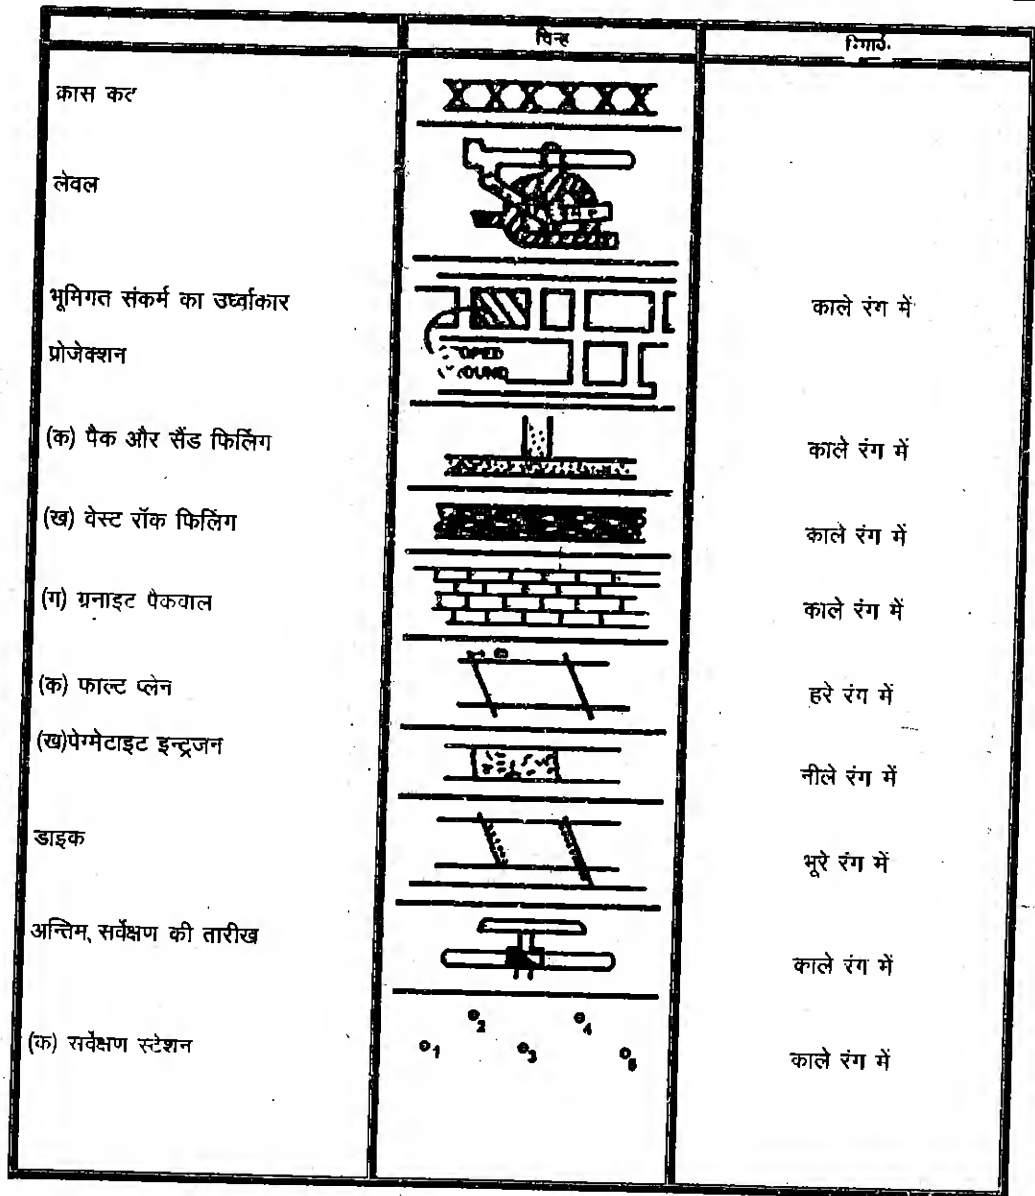 चिन्ह रिमार्क
क्रास कट
लेवल
भूमिगत संकर्म का उर्ध्वाकार काले रंग में
प्रोजेक्शन
STOPED
GROUND
(क) पैक और सैंड फिलिंग काले रंग में
(ख) वेस्ट रॉक फिलिंग काले रंग में
(ग) ग्रनाइट पैकवाल काले रंग में
(क) फाल्ट प्लेन हरे रंग में
(ख)पेग्मेटाइट इन्ट्रजन नीले रंग में
डाइक भूरे रंग में
अन्तिम, सर्वेक्षण की तारीख काले रंग में
(क) सर्वेक्षण स्टेशन 1 2 3 4 5 काले रंग में